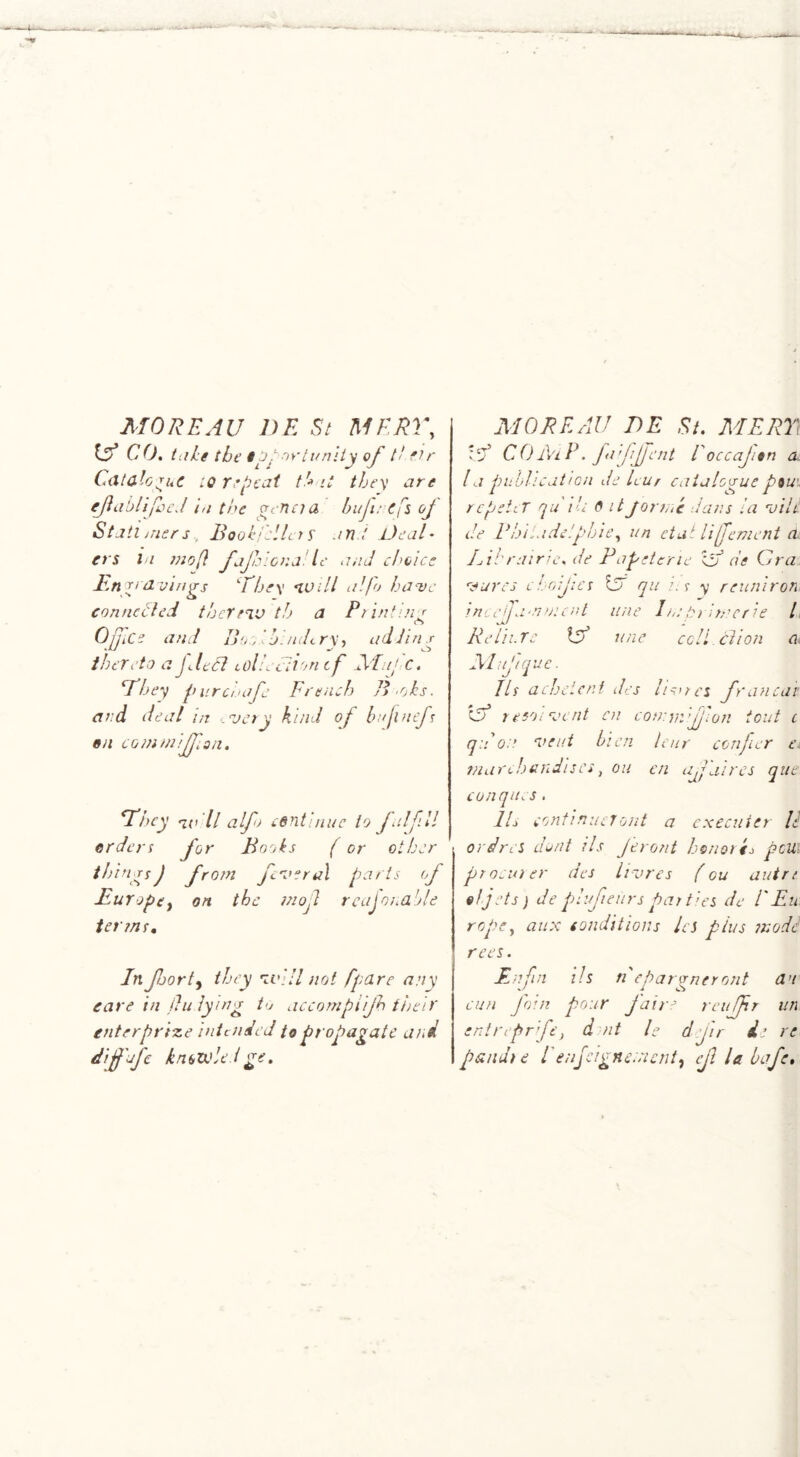 MOREAU DE St MERY,
& CO. take the opportunity of their
Catalogue to repeat that they are
eſtabliſhed in the general buſineſs of
Stationers, Bookſellers and Deal-
ers in moſt faſhionable and choice
Engravings They will alſo have
connected therewith a Printing
Office and Bookbindery, adding
thereto a ſelect collection of Muſic.
They purchaſe French Books.
and deal in every kind of buſineſs
on commiſſion.
They will alſo continue to fulfill
orders for Books ( or other
things) from ſeveral parts of
Europe, on the moſt reaſonable
terms.
In ſhort, they will not ſpare any
care in ſtudying to accompliſh their
enterprize intended to propagate and
diffuſe knowledge.
MOREAU DE St. MERY
& COMP. ſaiſiſſent l'occaſion
la publication de leur catalogue pour
repeter qu'ils ont formé dans la ville
de Philadelphie, un etabliſſement
Librairie, de Papeterie & de Gra
vures choiſies & qu'ils y reuniron
inceſſamment une Imprimerie
Reliure & une collection
Muſique.
Ils achetent des livres françai
& reçoivent en commiſſion tout
qu'on veut bien leur confier
marchandises, ou en affaires que
conques.
Ils continueront a executer
ordres dont ils ſeront honorés pour
procurer des livres (ou autre
objets) de pluſieurs parties de l'Eu
rope, aux conditions les plus modé
rees.
Enfin ils n'epargneront au
cun ſoin pour faire reuſſir un
entrepriſe, dont le deſir de re
pandre l'enſeignement, eſt la baſe.